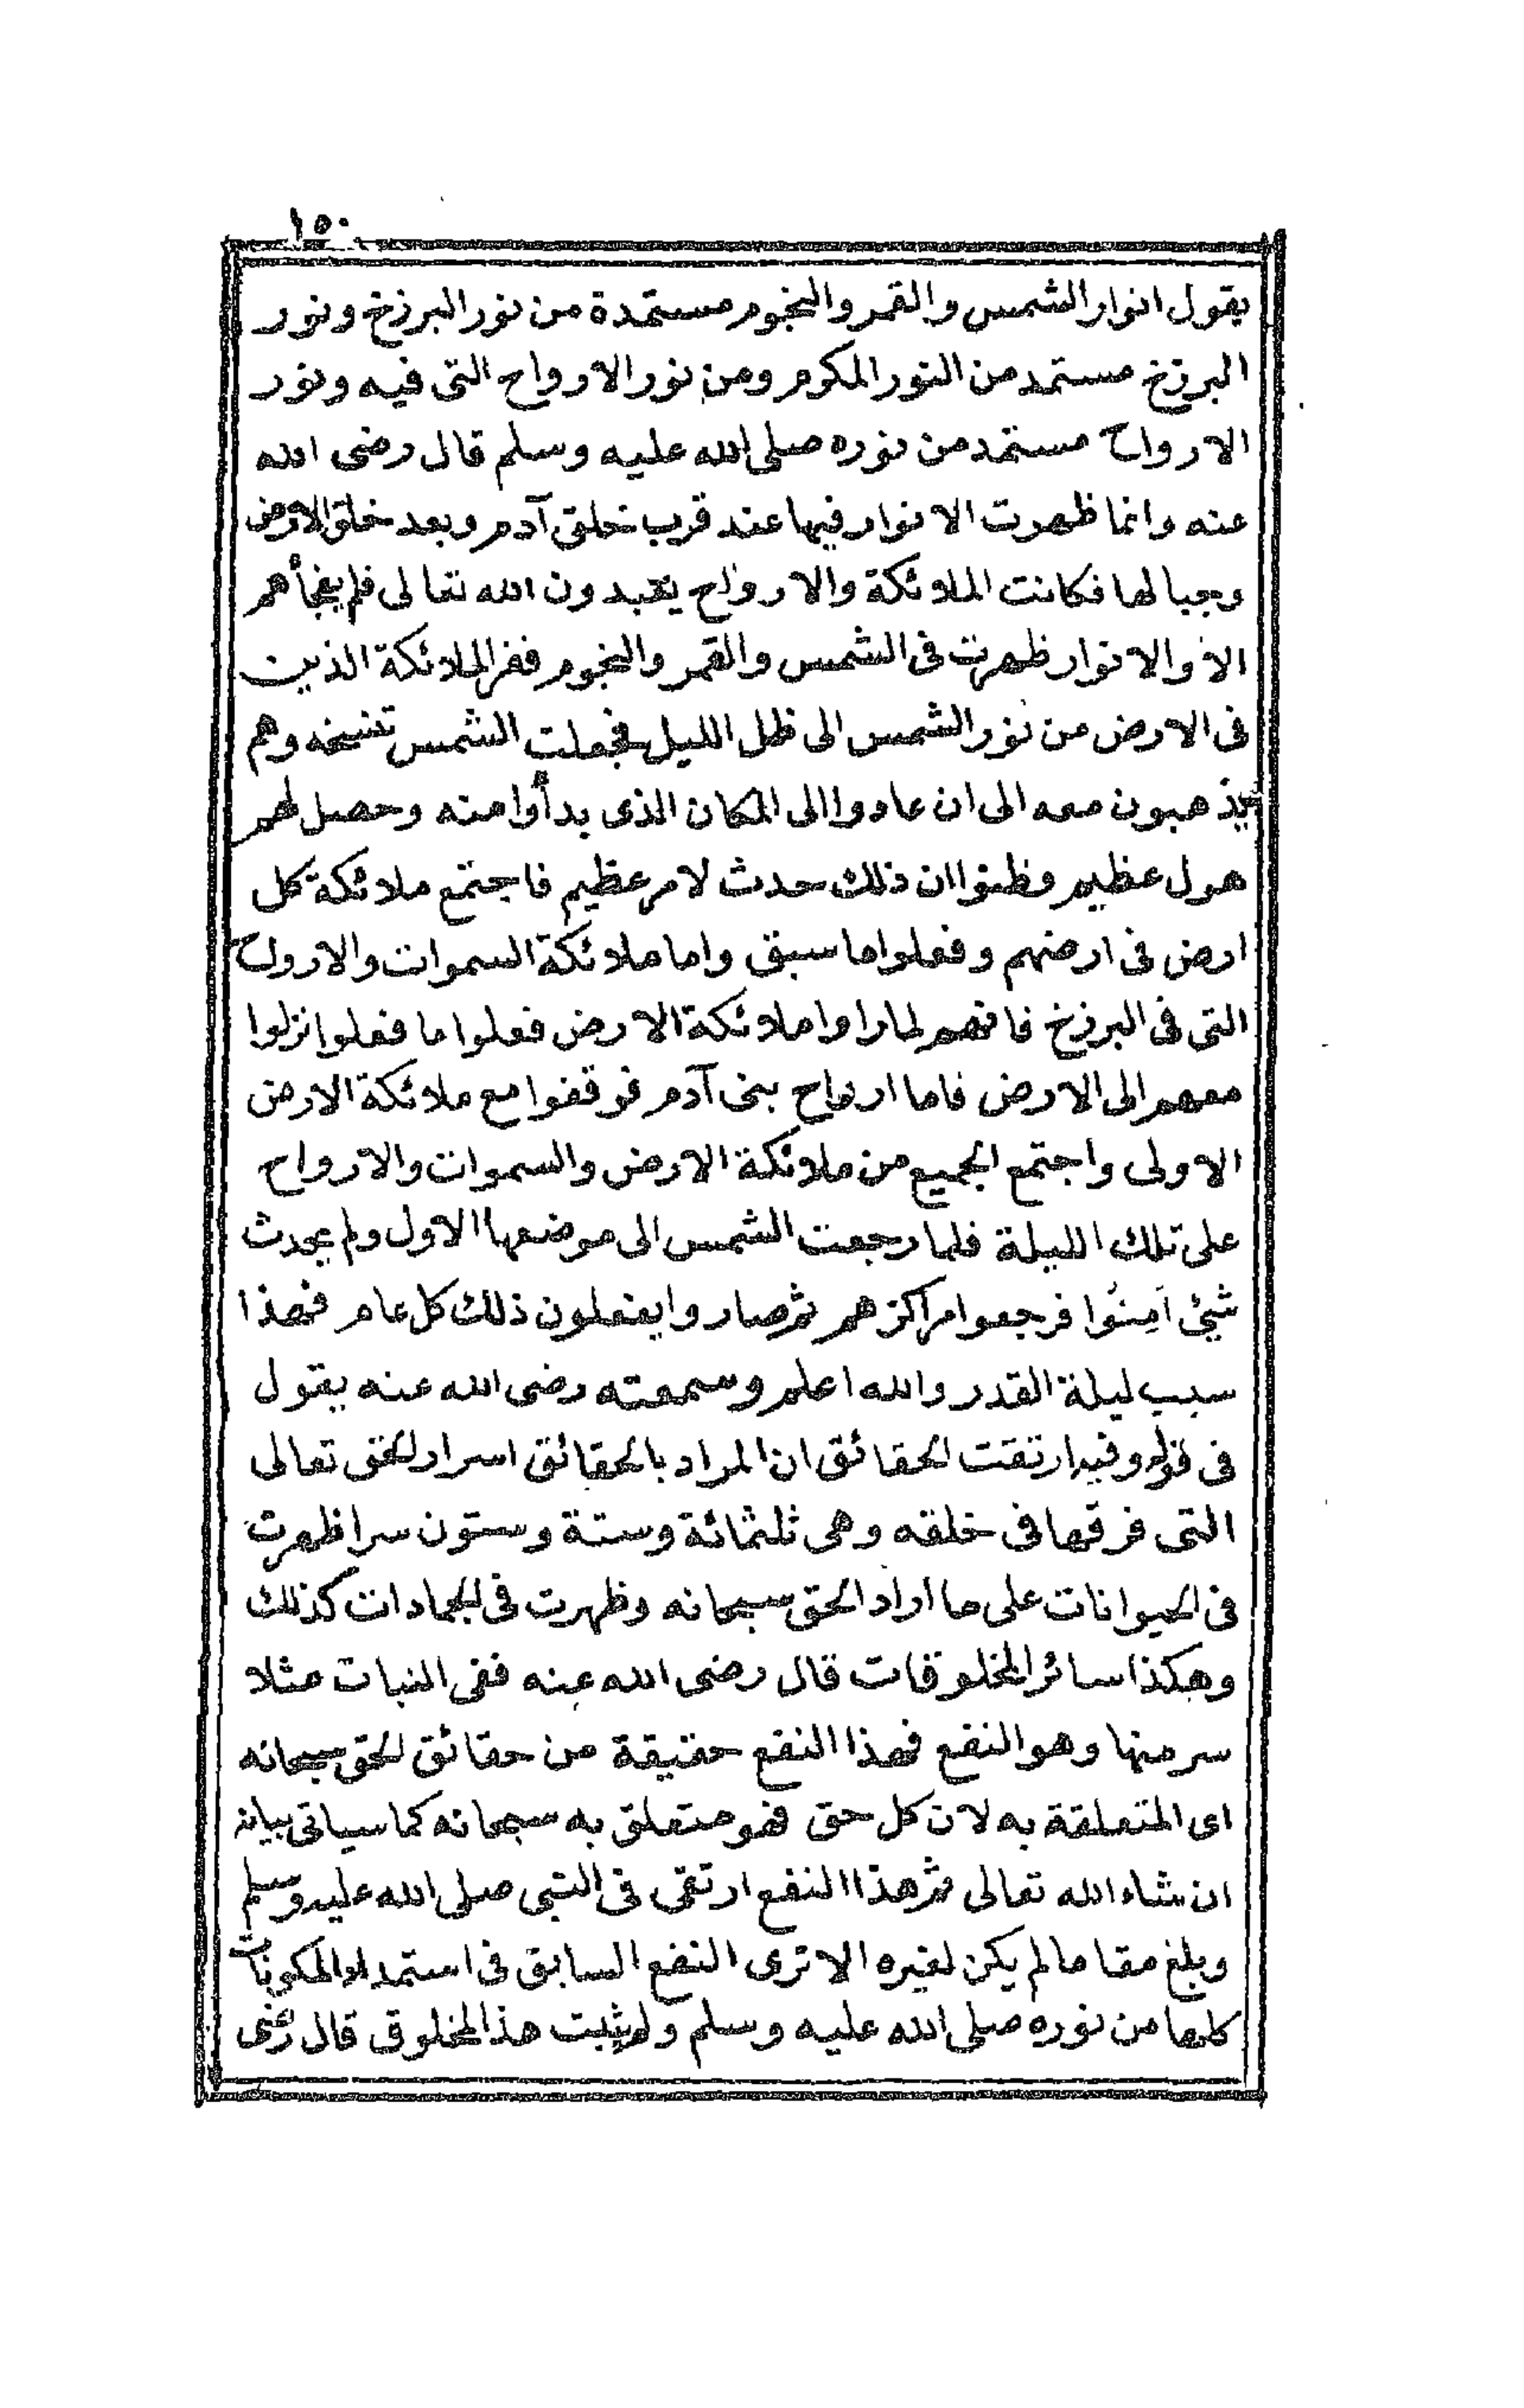 ١٥٠
يقول انوار الشمس والقمر والنجوم مستمدة من نور البرزخ ونور
البرزخ مستمد من النور المكرم ومن نور الارواح التى فيه ونور
الارواح مستمد من نوره صلى الله عليه وسلم قال رضى الله
عنه وانما ظهرت الانوار فيها عند قرب خلق آدم وبعد خلق الارض
وجبالها فكانت الملائكة والارواح يعبدون الله تعالى فلم يفجأهم
الا والانوار ظهرت فى الشمس والقمر والنجوم ففر الملائكة الذين
فى الارض من نور الشمس الى ظل الليل فجعلت الشمس تنسخه وهم
يذهبون معه الى ان عادوا الى المكان الذى بدأوا منه وحصل لهم
هول عظيم وظنوا ان ذلك حدث لامر عظيم فاجتمع ملائكة كل
ارض فى ارضهم وفعلوا ما سبق واما ملائكة السموات والارواح
التى فى البرزخ فانهم لما راوا ملائكة الارض فعلوا ما فعلوا نزلوا
معهم الى الارض فاما ارواح بنى آدم فوقفوا مع ملائكة الارض
الاولى واجتمع الجميع من ملائكة الارض والسموات والارواح
على تلك الليلة فلما رجعت الشمس الى موضعها الاول ولم يحدث
شيئ اَمِنُوا فرجعوا مراكزهم ثم صاروا يفعلون ذلك كل عام فهذا
سبب ليلة القدر والله اعلم وسمعته رضى الله عنه يقول
فى قوله وفيه ارتقت الحقائق ان المراد بالحقائق اسرار الحق تعالى
التى فرقها فى خلقه وهى ثلثمائة وستة وستون سرا ظهرت
فى الحيوانات على ما اراد الحق سبحانه وظهرت فى الجمادات كذلك
وهكذا سائر المخلوقات قال رضى الله عنه ففى النبات مثلا
سر منها وهو النفع فهذا النفع حقيقة من حقائق الحق سبحانه
اى المتعلقة به لان كل حق فهو متعلق به سبحانه كما سياتى بيانه
ان شاء الله تعالى ثم هذا النفع ارتقى فى النبى صلى الله عليه وسلم
وبلغ مقاما لم يكن لغيره الا ترى النفع السابق فى استمداد المكونات
كلها من نوره صلى الله عليه وسلم ولم يثبت هذا لمخلوق قال رضى